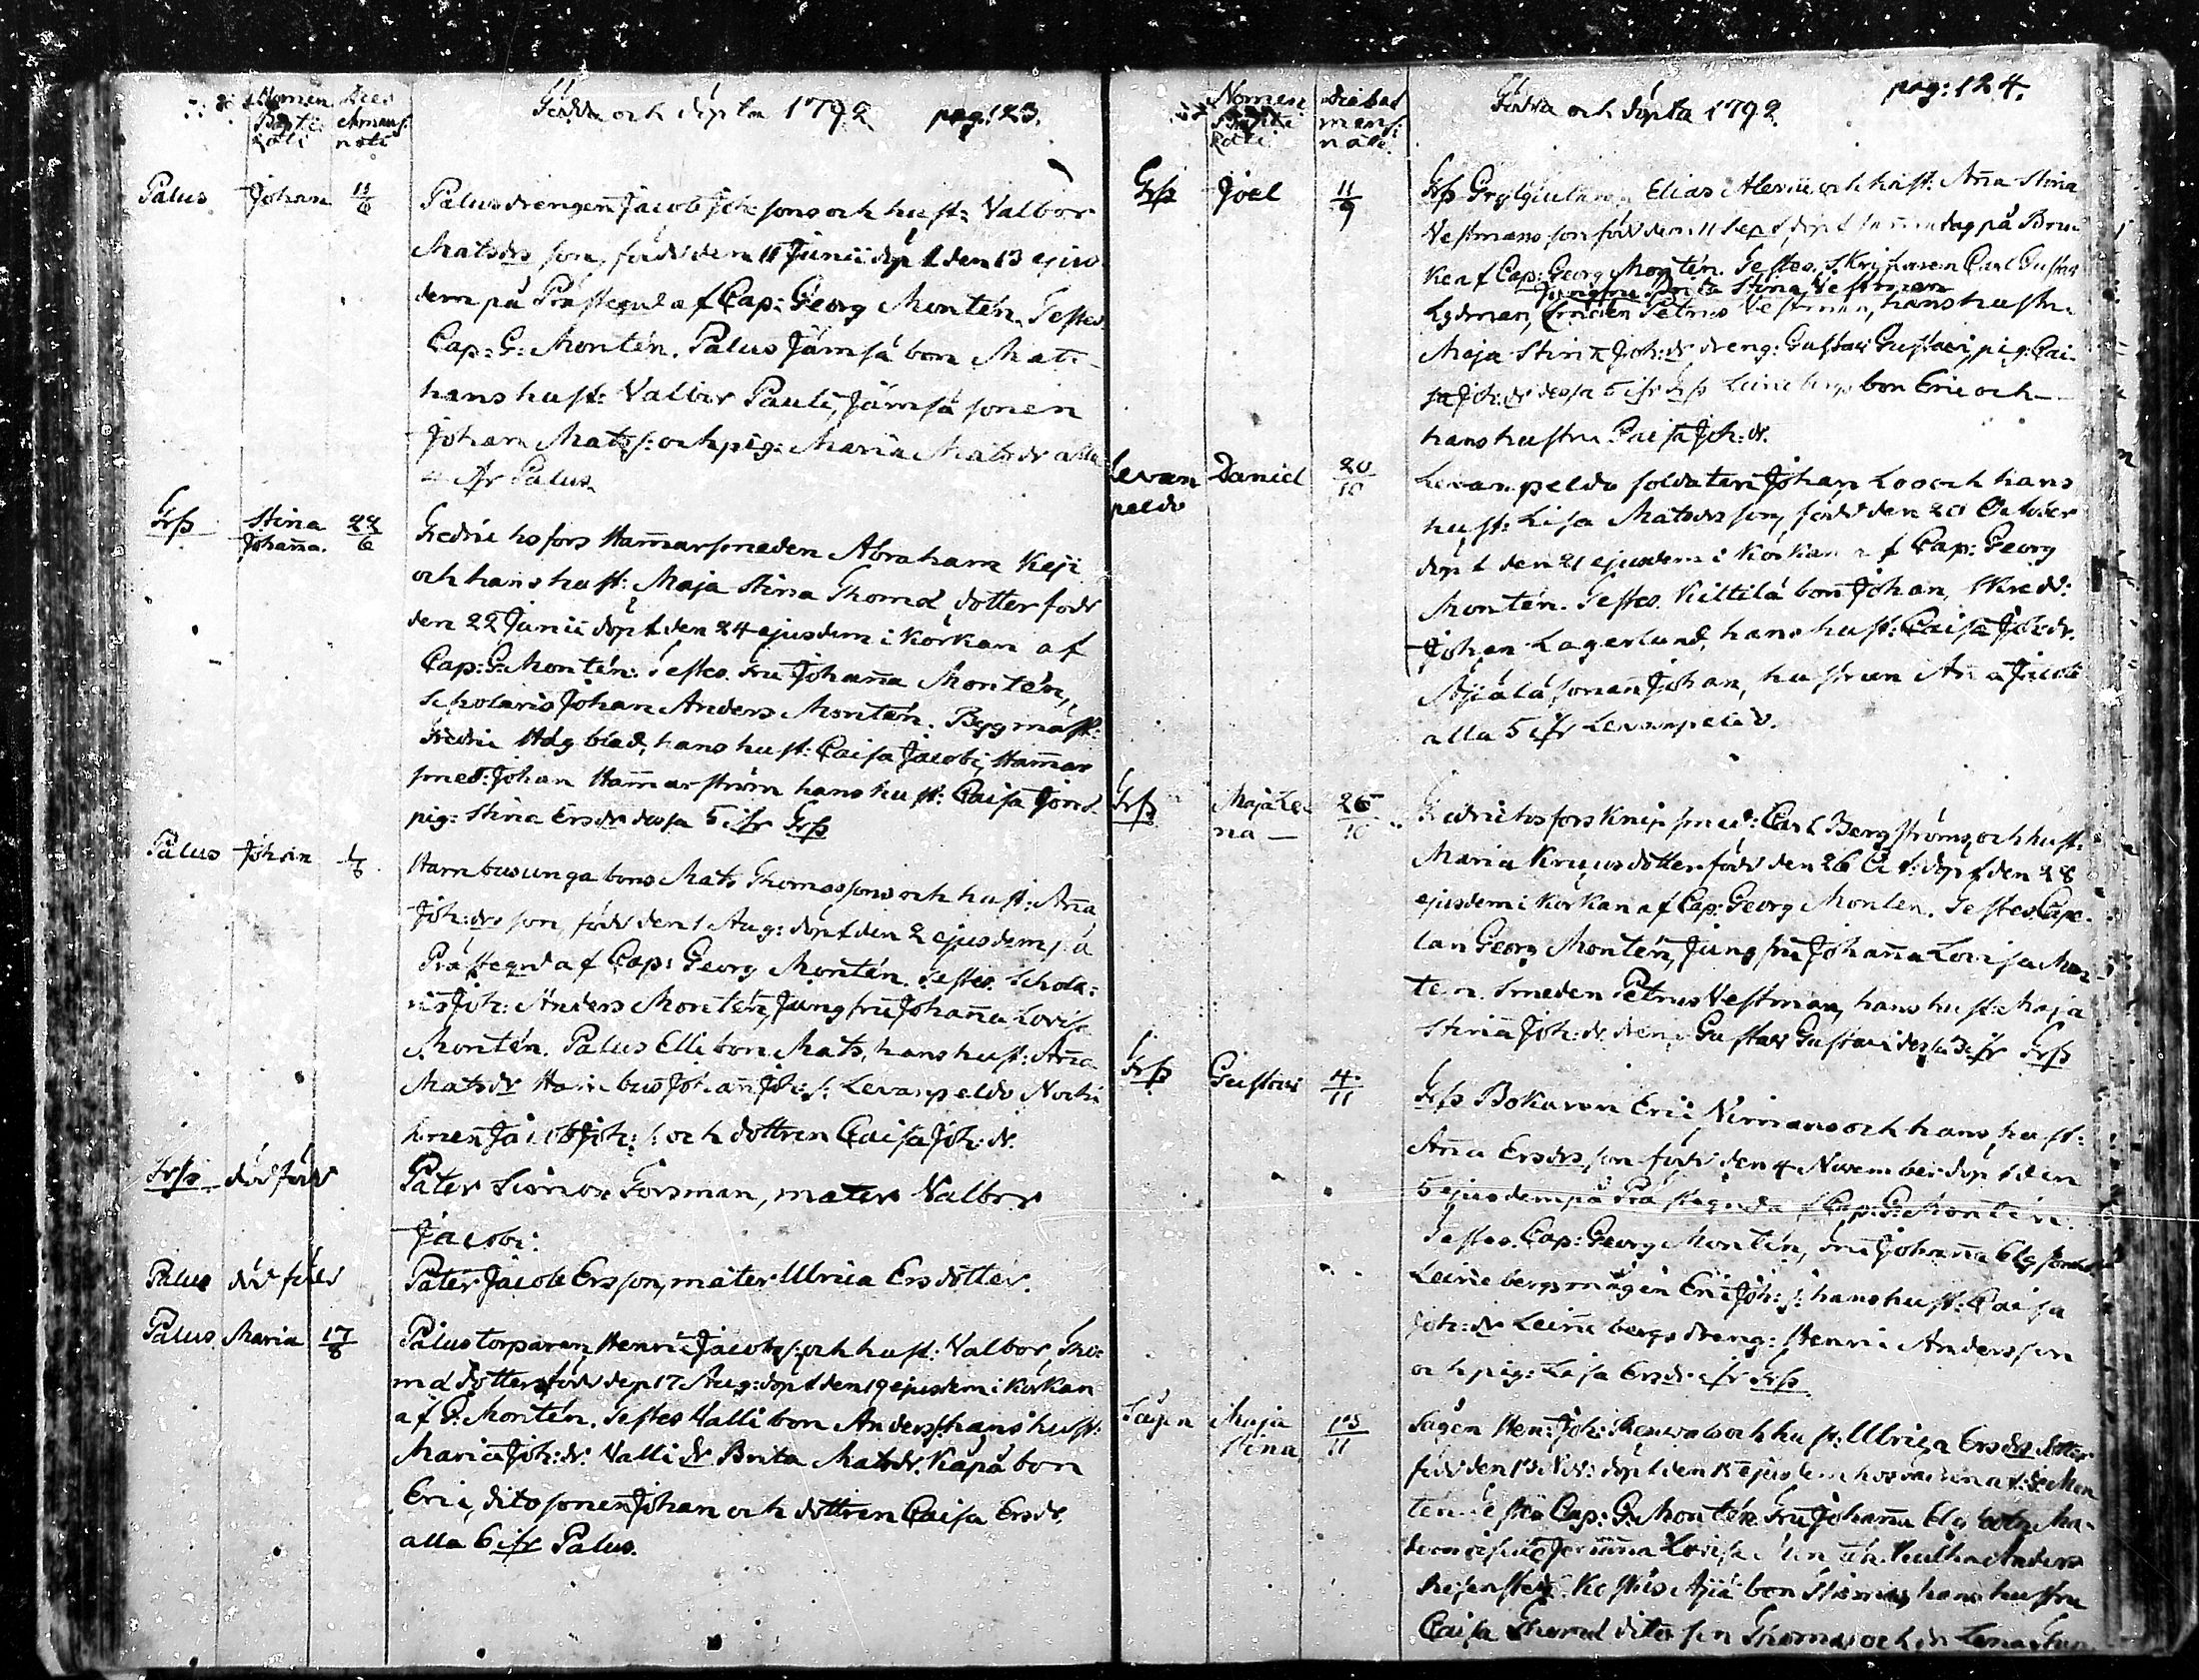 Nomen Dies
Bapti etmens:
zati nati
Födde och döpta 1792 pag: 123.
Palus Johan 11/6
Palus drengen Jacob Joh: sons och hust: Valbor
Matsdrs son, född den 11 Junii döpt den 13 ejus
dem på Prästegrd af Cap: Georg Montén. Testes.
Cap: G: Montén. Palus Jämsä bon Mat:
hans hust: Valbor Pauli, Jämsä sonen
Johan Mats s: och pig: Maria Mats dr alla
ifr Palus.
Frß Stina Johaña. 22/6
Fredrichsfors Hamarsmeden Abraham Keji
och hans hust: Maja Stina Thomæ dotter född
den 22 Junii döpt den 24 ejusdem i Körkan af
Cap: G: Montén: Testes. Fru Johaña Montén,
Scholaris Johan Anders Montén. Bygmäst:
Fredric Högblad, hans hust: Caisa Jacobi, Hamar
smed: Johan Hamarström hans hust: Caisa
pig: Stina Ersdr dessa 5 ifr Frß
Palus Johan 1/8
bons Mats Thomassons och hust: Aña
Joh:drs son, född den 1 Aug: döpt den 2 ejusdem på
Prästegrd af Cap: Georg Montén. Testes. Schola:
ris Joh: Anders Montén, Jungfru Johaña Lovisa
Montén. Palus Elli bon Mats, hans hust: Aña
Matsdr Johañ Joh: s: Levanpeldo
Jacob Joh: s: och dottren Caisa Joh: dr.
Frß död född
Pater Simon Forsman, mater Valbor
Jacobi.
Palus död född
Pater Jacob Ersson, mater Ulrica Ersdotter.
Palus Maria 17/8
Palus torparen Henric Jacobs s: och hust: Valbor, Tho:
mæ dotter född den 17 Aug: döpt den 19 ejusdem i Körkan
af G: Montén. Testes Valli bon Anders, hans hust:
Maria Joh: dr. Valli dr Brita Matsdr. Käpä bon
Eric, dito sonen Johan och dottren Caisa Ersdr.
alla 6 ifr Palus.
Nomen Dies et
Bapti mens:
zati. nati.
Födda och döpta 1792.
pag: 124.
Frß Joel 11/9
Frß Elias och hust: Aña Stina
Vestmans son född den 11 Sept döpt samma dag på Bru
ket af Cap: Georg Montén. Testes. Skrifvaren Carl Gustav
Jungfru Brita Stina Vestman
Lydman, Smeden Petrus Vestman, hans hustru
Maja Stina Joh: dr dreng: Gustav Gustavi, pig: Cai-
sa Joh: dr dessa 5 ifr Frß Leine bergs bon Eric och
hans hustru Caisa Joh: dr.
Levan peldo Daniel 20/10
Levanpeldo soldaten Johan Loo och hans
hust: Lisa Matsdrs son, född den 20 October
döpt den 21 ejusdem i Körkan af Cap: Georg
Montén. Testes. Kittilä bon Johan,
Johan Lagerlund, hans hust: Caisa Joh:dr.
Äijälä sonen Johan, hustrun Aña Jacobi
alla 5 ifr Levanpeldo.
Frß Maja Le na 26/10
Fredrichsfors Knip smed: Carl Bergströms och hust:
Maria Kruus dotter född den 26 Oct: döpt den 28
ejusdem i Körkan af Cap: Georg Montén. Testes. Cape-
lan Georg Montén, Jungfru Johaña Lovisa Mon
tén. Smeden Petrus Vestman, hans hust: Maja
Stina Joh: dr. dreng: Gustav Gustavi dessa 3 ifr Frß
Frß Gustav 4/11
Frß Bokaren Eric Nimans och hans hust:
Aña Ersdrs son född den 4 November döpt den
5 ejusdem på Prästegrden af Cap: G: Montén.
Testes. Cap: Georg Montén, fru Johaña
Leine bergs Eric Joh: s: hans hust: Caisa
Joh: dr Leine bergs dreng: Henric Andersson
och pig: Lisa Ersdr ifr Frß
Maja Stina 13/11
och hust: Ulrica Ersdrs dotter
född den 13 Nov: döpt den 15 ejusdem af G: Mon
tén Testes Cap: G: Montén. Fru Johaña
Lovisa Anders
bon hans hustru
Caisa Thomæ dito son Thomas och dr Lena